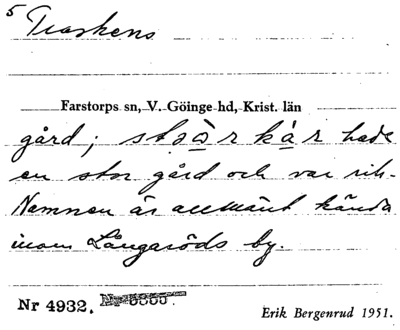 5
Traskens
Farstorps sn, V. Göinge hd, Krist. län
gård; stoàr kàr hade
en stor gård och var rik.
Namnen är allmänt kända
inom Långaröds by.
Nr 4932.
Erik Bergenrud 1951.